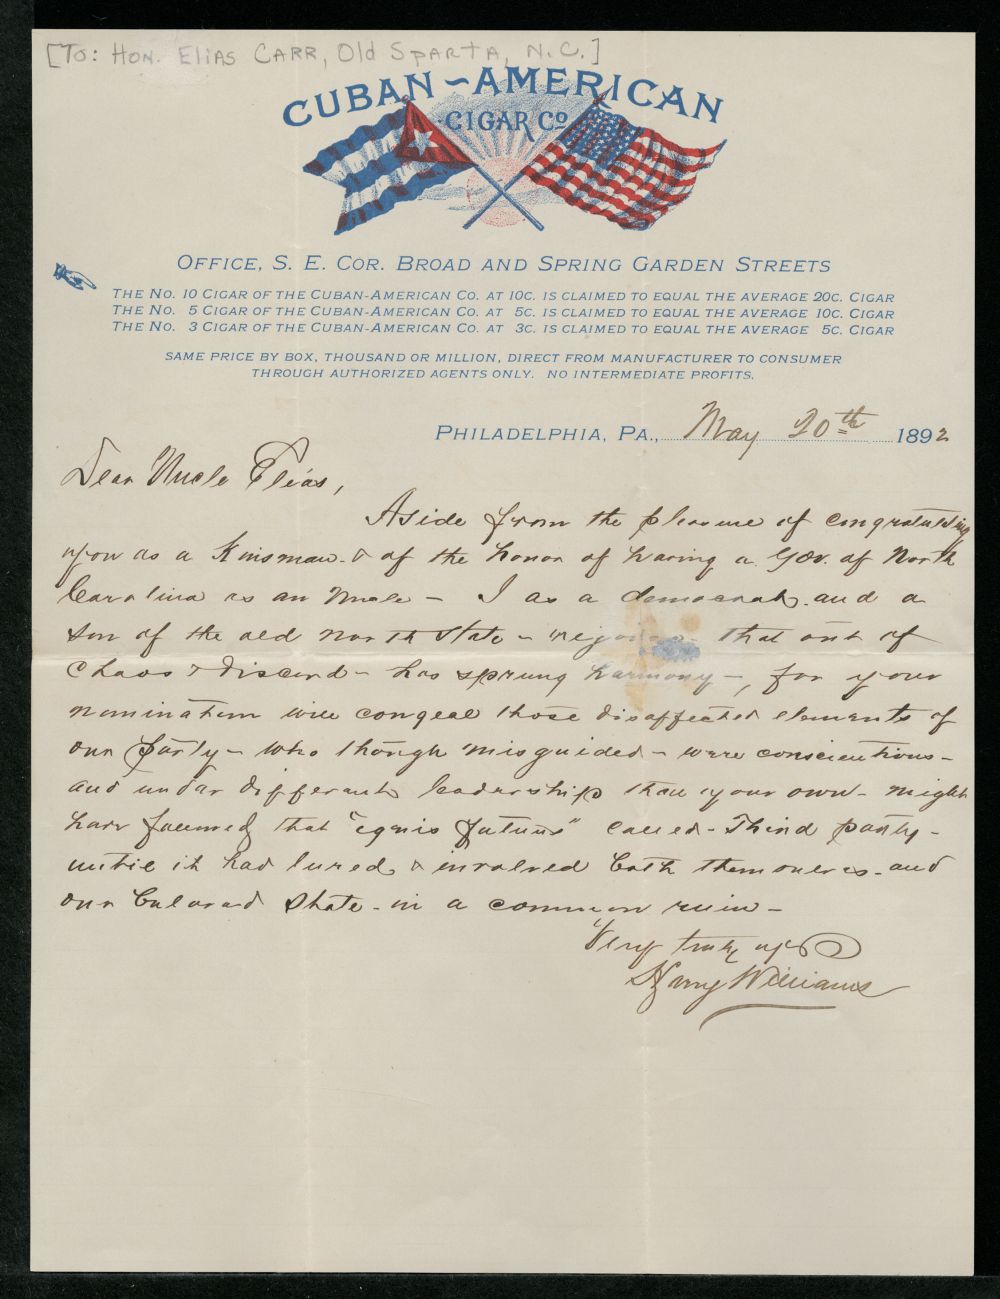 [To: Hon. Elias Carr, Old Sparta, N.C.]
CUBAN-AMERICAN
CIGAR Co.
OFFICE, S. E. COR. BROAD AND SPRING GARDEN STREETS
THE NO. 10 CIGAR OF THE CUBAN-AMERICAN CO. AT 10C. IS CLAIMED TO EQUAL THE AVERAGE 20C. CIGAR
THE NO. 5 CIGAR OF THE CUBAN-AMERICAN CO. AT 5C. IS CLAIMED TO EQUAL THE AVERAGE 10C. CIGAR
THE NO. 3 CIGAR OF THE CUBAN-AMERICAN CO. AT 3C. IS CLAIMED TO EQUAL THE AVERAGE 5C. CIGAR
SAME PRICE BY BOX, THOUSAND OR MILLION, DIRECT FROM MANUFACTURER TO CONSUMER
THROUGH AUTHORIZED AGENTS ONLY. NO INTERMEDIATE PROFITS.
PHILADELPHIA, PA., May 20th 1892
Dear Uncle Elias,
Aside from the pleasure of congratulating
you as a Kinsman - & of the honor of having a Gov. of North
Carolina as an Uncle - I as a democrat, and a
son of the old north state - rejoice - that out of
chaos & discord - has sprung harmony -, for your
nomination will congeal those disaffected elements of
our party - who though misguided - were conscientious -
and under different leadership than your own - might
have followed that "ignis fatuus" called - Third party -
until it had lured & involved both themselves - and
our beloved State - in a common ruin -
Very truly yrs
Harry Williams